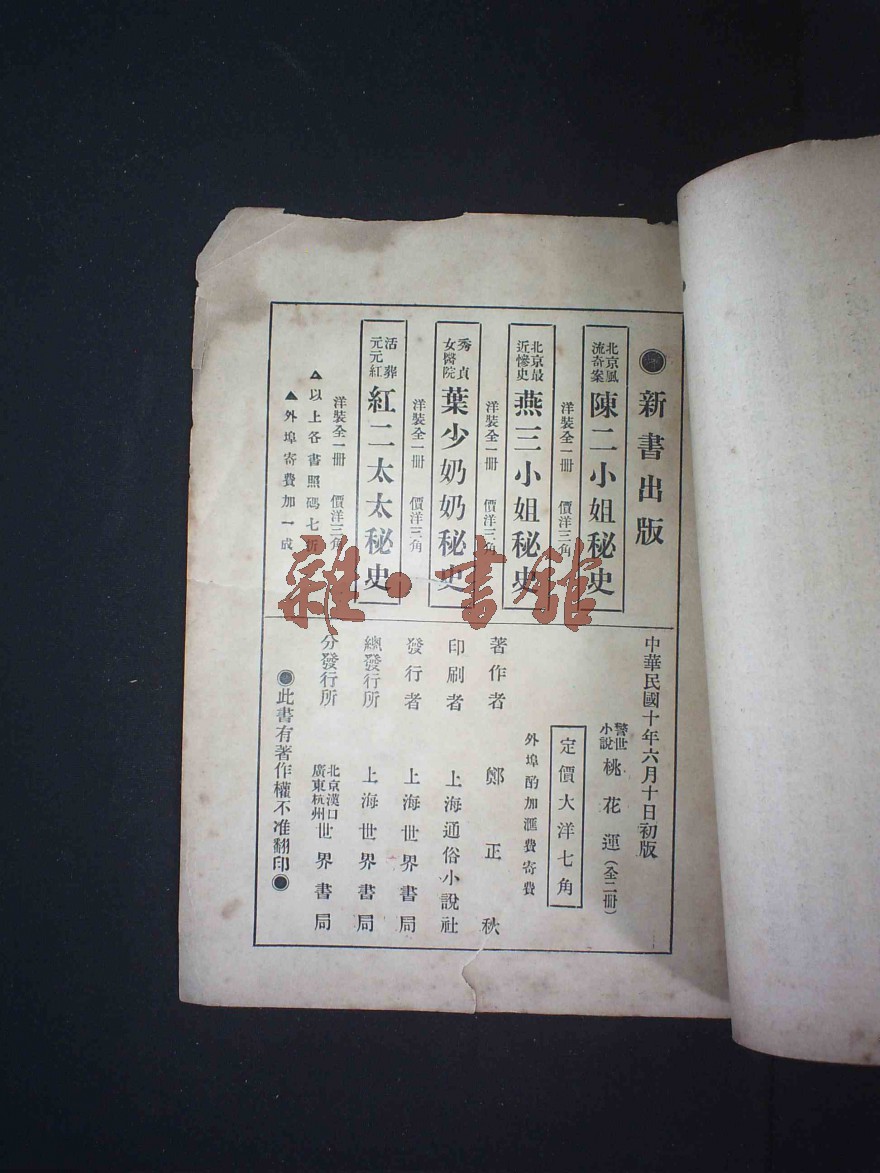 新書出版
北京風流奇案 陳二小姐秘史
洋裝全一冊 價洋三角
北京最近慘史 燕三小姐秘史
洋裝全一冊 價洋三角
秀貞女醫院 葉少奶奶秘史
洋裝全一冊 價洋三角
活葬元元紅 紅二太太秘史
洋裝全一冊 價洋三角
▲以上各書照碼七折
▲外埠寄費加一成
中華民國十年六月十日初版
警世小說 桃花運(全二冊)
定價大洋七角
外埠酌加滙費寄費
著作者 鄭正秋
印刷者 上海通俗小說社
發行者 上海世界書局
總發行所 上海世界書局
分發行所 北京漢口廣東杭州 世界書局
●此書有著作權不准翻印●
雜·書館